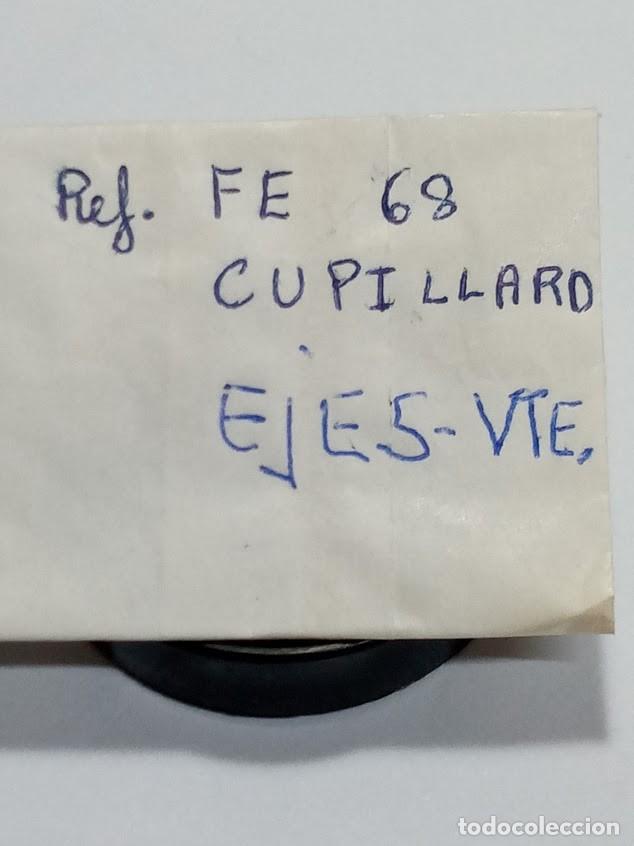 Ref. FE 68
CUPILLARD
EjES-VTE.
todocoleccion